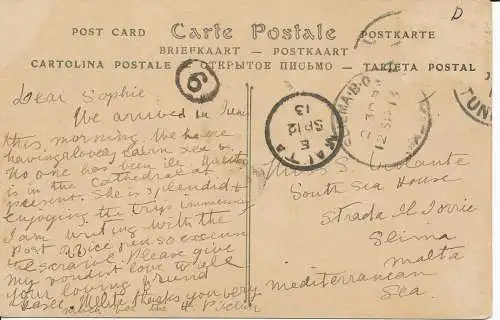 D
POST CARD Carte Postale POSTKARTE
BRIEFKAART — POSTKAART
CARTOLINA POSTALE — ОТКРЫТОЕ ПИСЬМО — TARJETA POSTAL
6
MALTA
E
SP 12
13
12 SP 13
TUN
Dear Sophie
We arrived in
this morning. We have
having lovely calm sea &
No one has been ill.
is in the Cathedral at
present. She is splendid &
enjoying the trip immensely
I am writing with the
Post Office pen so excuse
the scrawl. Please give
my fondest love to all
your loving friend
thanks you very
much for the
Miss S. Violante
South Sea House
Strada Il Torri
Slima
Malta
mediterranean
Sea.